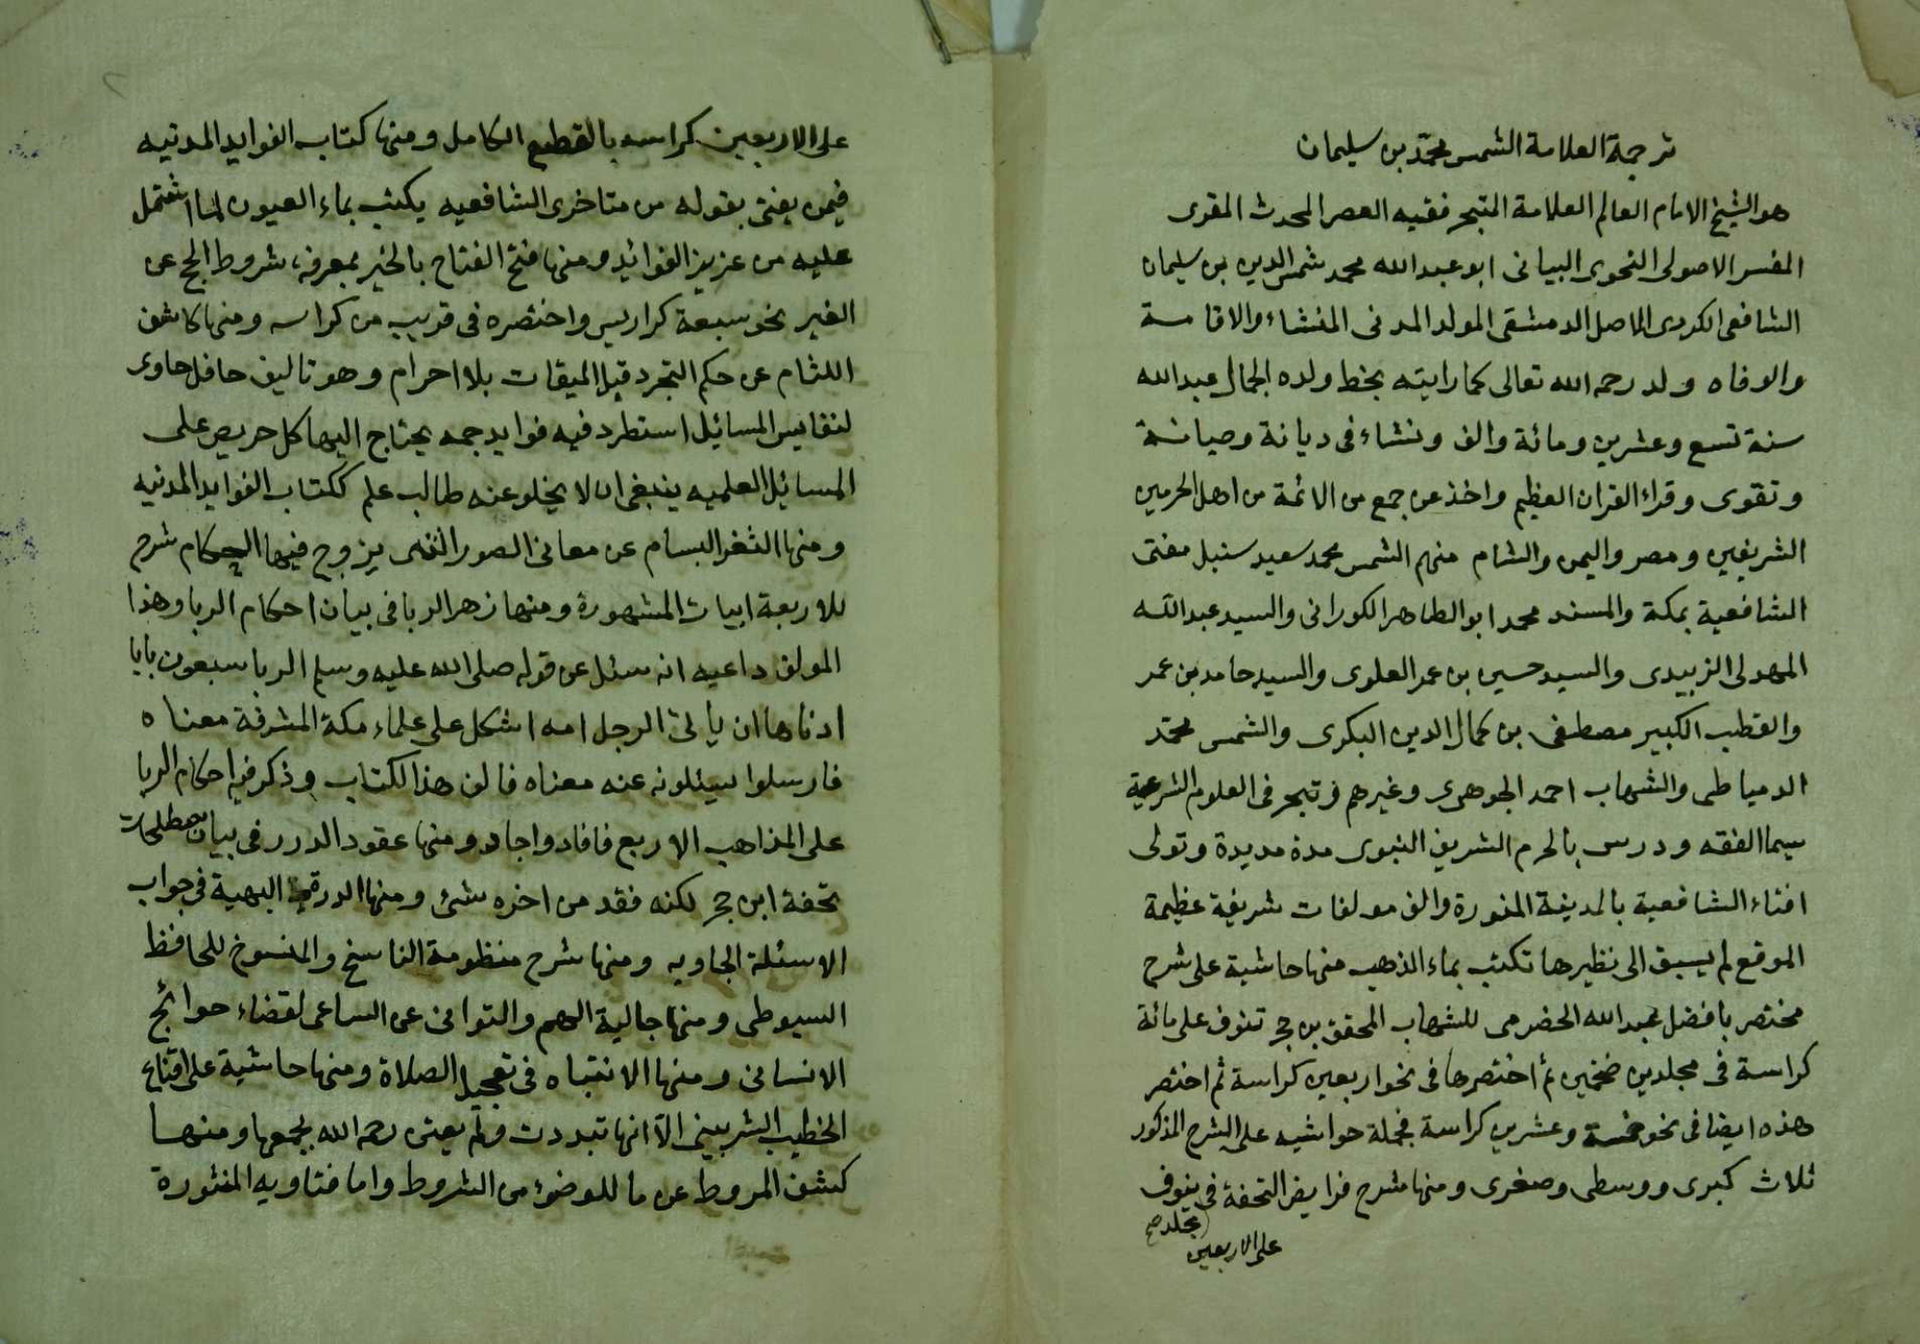 ترجمة العلامة الشمس محمد بن سليمان
هو الشيخ الامام العالم العلامة المتبحر فقيه العصر المحدث المقرى
المفسر الاصولى النحوى البيانى ابو عبد الله محمد شمس الدين بن سليمان
الشافعى الكردى الاصل الدمشقى المولد المدنى المنشاء والاقامة
والوفاه ولد رحمه الله تعالى كما رايته بخط ولده الجمال عبد الله
سنة تسع وعشرين ومائة والف ونشاء فى ديانة وصيانة
وتقوى وقراء القران العظيم واخذ عن جمع من الائمة من اهل الحرمين
الشريفين ومصر واليمن والشام منهم الشمس محمد سعيد سنبل مفتى
الشافعية بمكة والمسند محمد ابو الطاهر الكورانى والسيد عبد الله
المهدلى الزبيدى والسيد حسين بن عمر العلوى والسيد حامد بن عمر
والقطب الكبير مصطفى بن كمال الدين البكرى والشمس محمد
الدمياطى والشهاب احمد الجوهرى وغيرهم وتبحر فى العلوم الشرعية
سيما الفقه ودرس بالحرم الشريف النبوى مدة مديدة وتولى
افتاء الشافعية بالمدينة المنورة والف مولفات شريفة عظيمة
الموقع لم يسبق الى نظيرها تكتب بماء الذهب منها حاشية على شرح
مختصر بافضل عبد الله الحضرمى للشهاب المحقق بن حجر تنوف على مائة
كراسة فى مجلدين ضخمين ثم اختصرها فى نحو اربعين كراسة ثم اختصر
هذه ايضا فى نحو خمسة وعشرين كراسة فجملة حواشيه على الشرح المذكور
ثلاث كبرى ووسطى وصغرى ومنها شرح فرايض التحفة فى ينوف
مجلد صح
على الاربعين
على الاربعين كراسه بالقطع الكامل ومنها كتاب الفوايد المدنيه
فيمن يفتى بقوله من متاخرى الشافعيه يكتب بماء العيون لما اشتمل
عليه من عزيز الفوائد ومنها فتح الفتاح بالخير بمعرفة شروط الحج عن
الغير نحو سبعة كراريس واختصره فى قريب من كراسه ومنها كاشف
اللثام عن حكم التجرد قبل الميقات بلا احرام وهو تاليف حافل حاوى
لنفايس المسائل استطرد فيه فوايد جمه يحتاج اليها كل حريص على
المسائل العلميه ينبغى ان لا يخلو عنه طالب علم ككتاب الفوايد المدنيه
ومنها الثغر البسام عن معانى الصور التى يزوج فيها الحكام شرح
للاربعة ابيات المشهورة ومنها زهر الربا فى بيان احكام الربا وهذا
المولف داعيه انه سئل عن قوله صلى الله عليه وسلم الربا سبعون بابا
ادناها ان ياتى الرجل امه اشكل على علماء مكة المشرفة معناه
فارسلوا يسئلونه عنه معناه فالف هذا الكتاب وذكر فيه احكام الربا
على المذاهب الاربع فافاد واجاد ومنها عقود الدرر فى بيان مصطلحات
تحفة ابن حجر لكنه فقد من اخره شئ ومنها الدرة البهية فى جواب
الاسئلة الجاويه ومنها شرح منظومة الناسخ والمنسوخ للحافظ
السيوطى ومنها جالية الهم والتوانى عن الساعى لقضاء حوائج
الانسانى ومنها الانتباه فى تعجيل الصلاة ومنها حاشية على اقناع
الخطيب الشربينى الا انها تبددت ولم يعتن رحمه الله بجمعها ومنها
كشف المروط عن ما للوضوء من الشروط واما فتاويه المنثورة